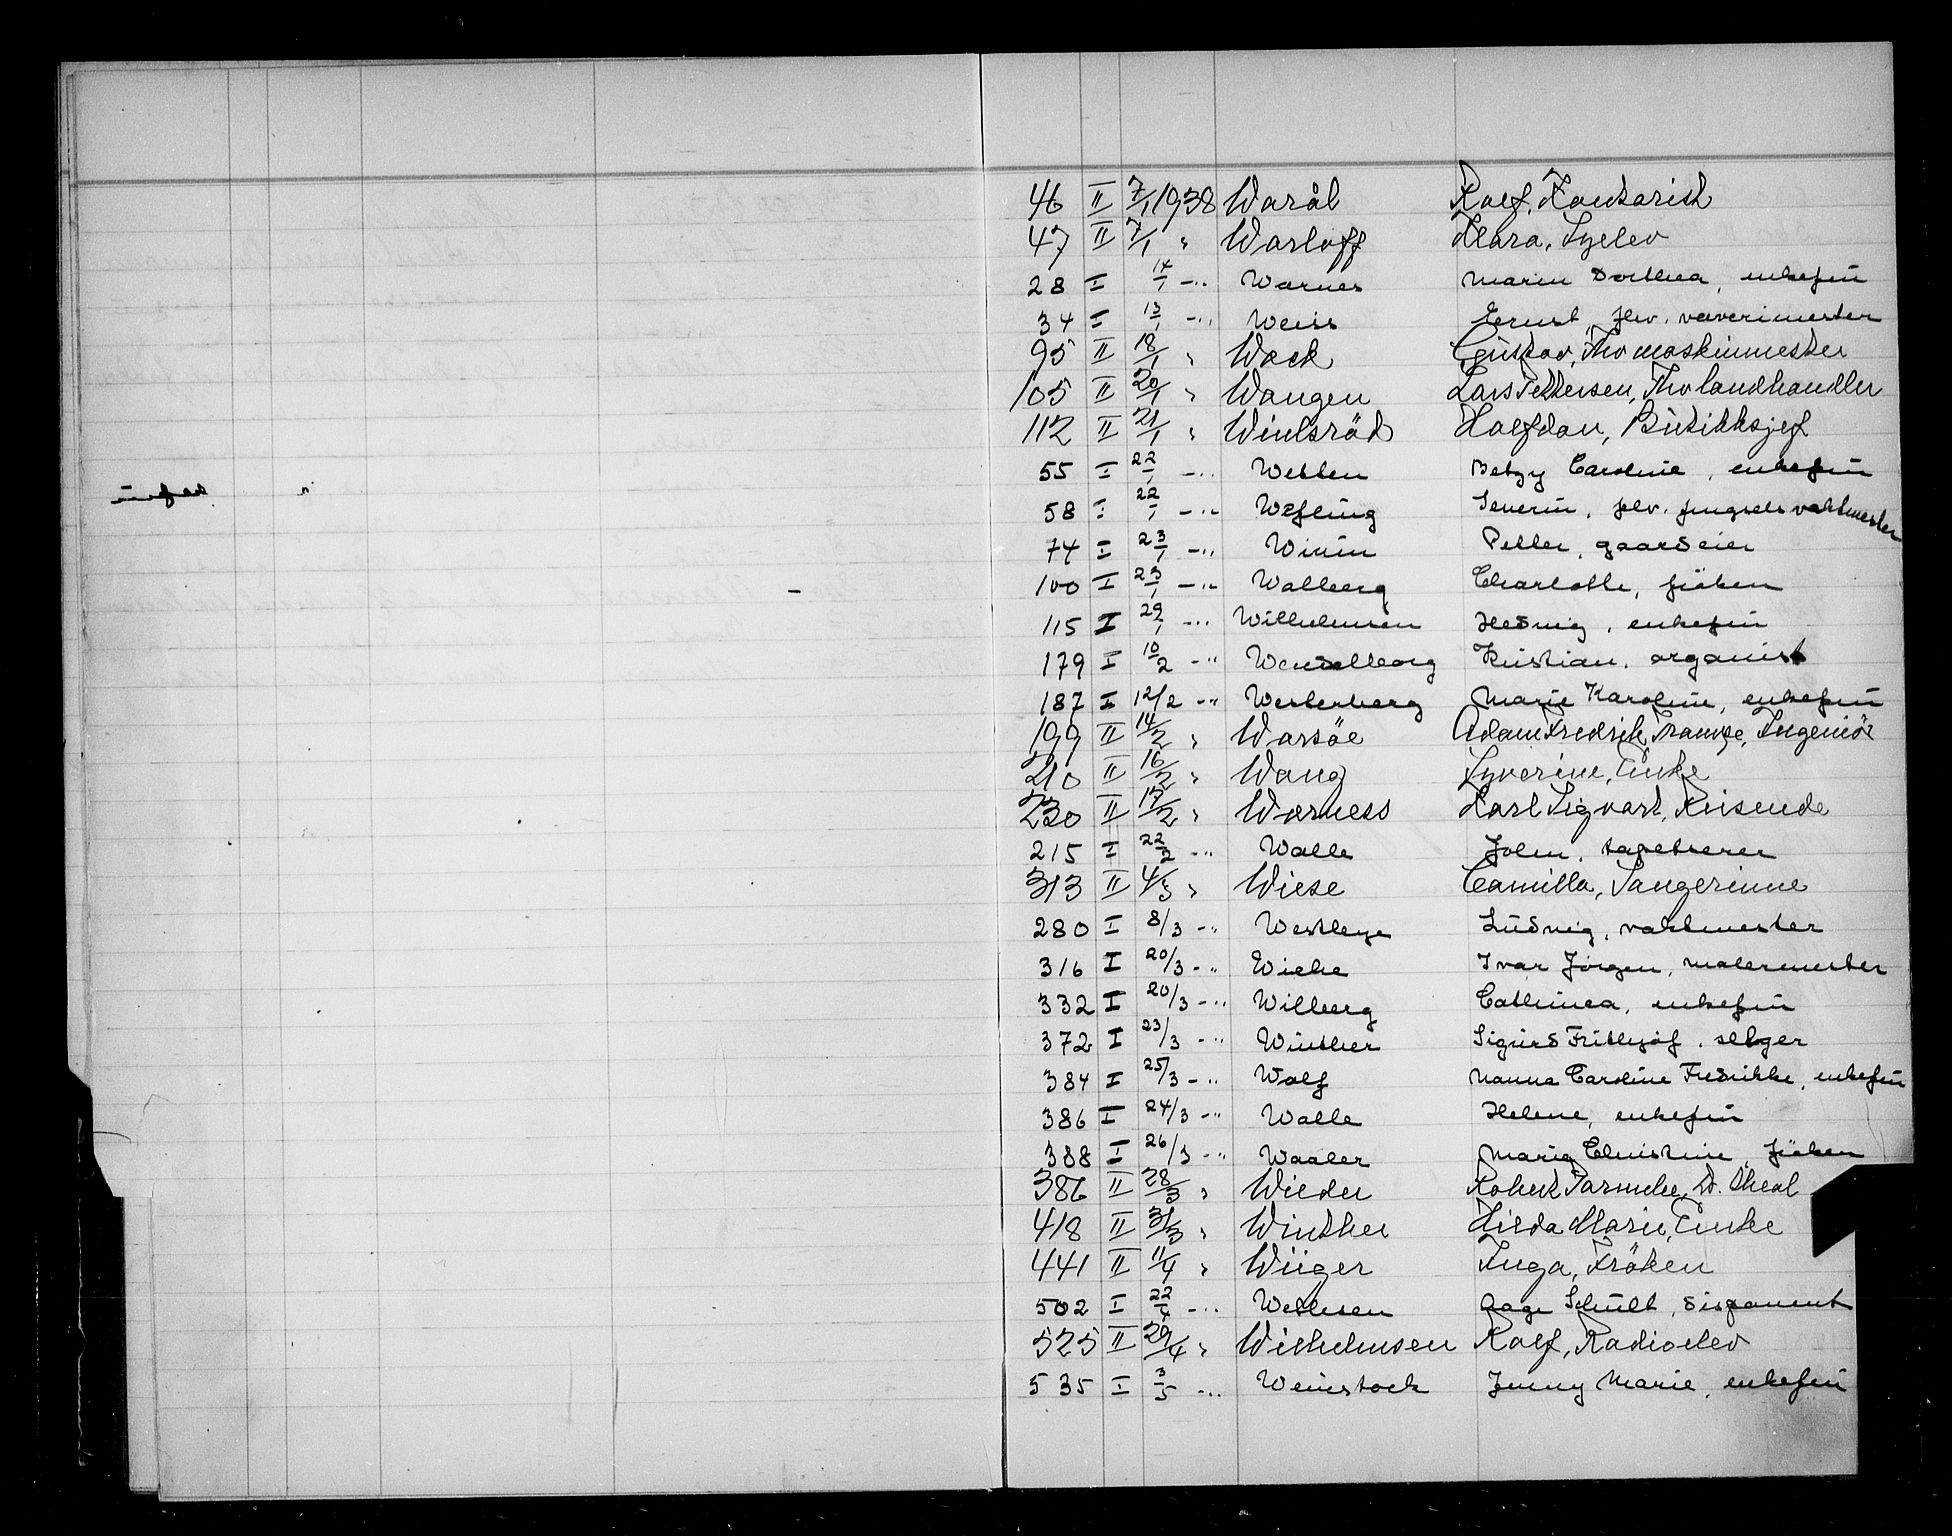 46 II 7/1 1938 Waråb Rolf, Kontorist
47 II 7/1 " Warloff Klara, Syelev
28 I 14/1 -"- Warnes Marin Dorthea, enkefrü
34 I 13/1 -"- Weiss Ernst, fhv. væverimester
95 II 18/1 " Wock Güstav, Fhv maskinmester
105 II 20/1 " Wangen Lars Pettersen, Fhv landhandler
112 II 21/1 " Wintsröd Halfdan, Bütikksjef
55 I 22/1 -"- Wetten Betzy Caroline, enkefrü
58 I 22/1 -"- Wefling Severin, fhv. fengselsvaktmester
74 I 23/1 -"- Petter, gaardeier
100 I 23/1 -"- Walberg Charlotte, fröken
115 I 29/1 -"- Wilhelmsen Hedvig, enkefrü
179 I 10/2 -"- Wendelborg Kristian, organist
187 I 12/2 -"- Westerberg Marie Karoline, enkefrü
199 II 14/2 " Warsöe Adam Fredrik Trampe, Ingeniör
210 II 16/2 " Wang Syverine, Enke
230 II 17/2 " Wærness Karl Sigvart, Reisende
215 I 22/2 -"- Walle John, tapetserer
313 II 4/3 " Wiese Camilla, Sangerinne
280 I 8/3 -"- Westbye Lüdvig, vaktmester
316 I 20/3 -"- Wiche Ivar Jörgen, malermester
332 I 20/3 -"- Wilberg Cathinca, enkefrü
372 I 23/3 -"- Winther Sigürd Frithjof, selger
384 I 25/3 -"- Wolf Nanna Caroline Fredrikke, enkefrü
386 I 24/3 -"- Walle Helene, enkefrü
388 I 26/3 -"- Waaler Marie Christine, fröken
386 II 28/3 " Wieder Robert Parmelee, D. theol
418 II 31/3 " Winther Hilda Marie, Enke
441 II 11/4 " Wüger Inga, Fröken
502 I 22/4 -"- Wethesen Aage Schült, disponent
525 II 29/4 " Wilhelmsen Rolf, Radioelev
535 I 3/5 -"- Weinstock Jenny Marie, enkefrü